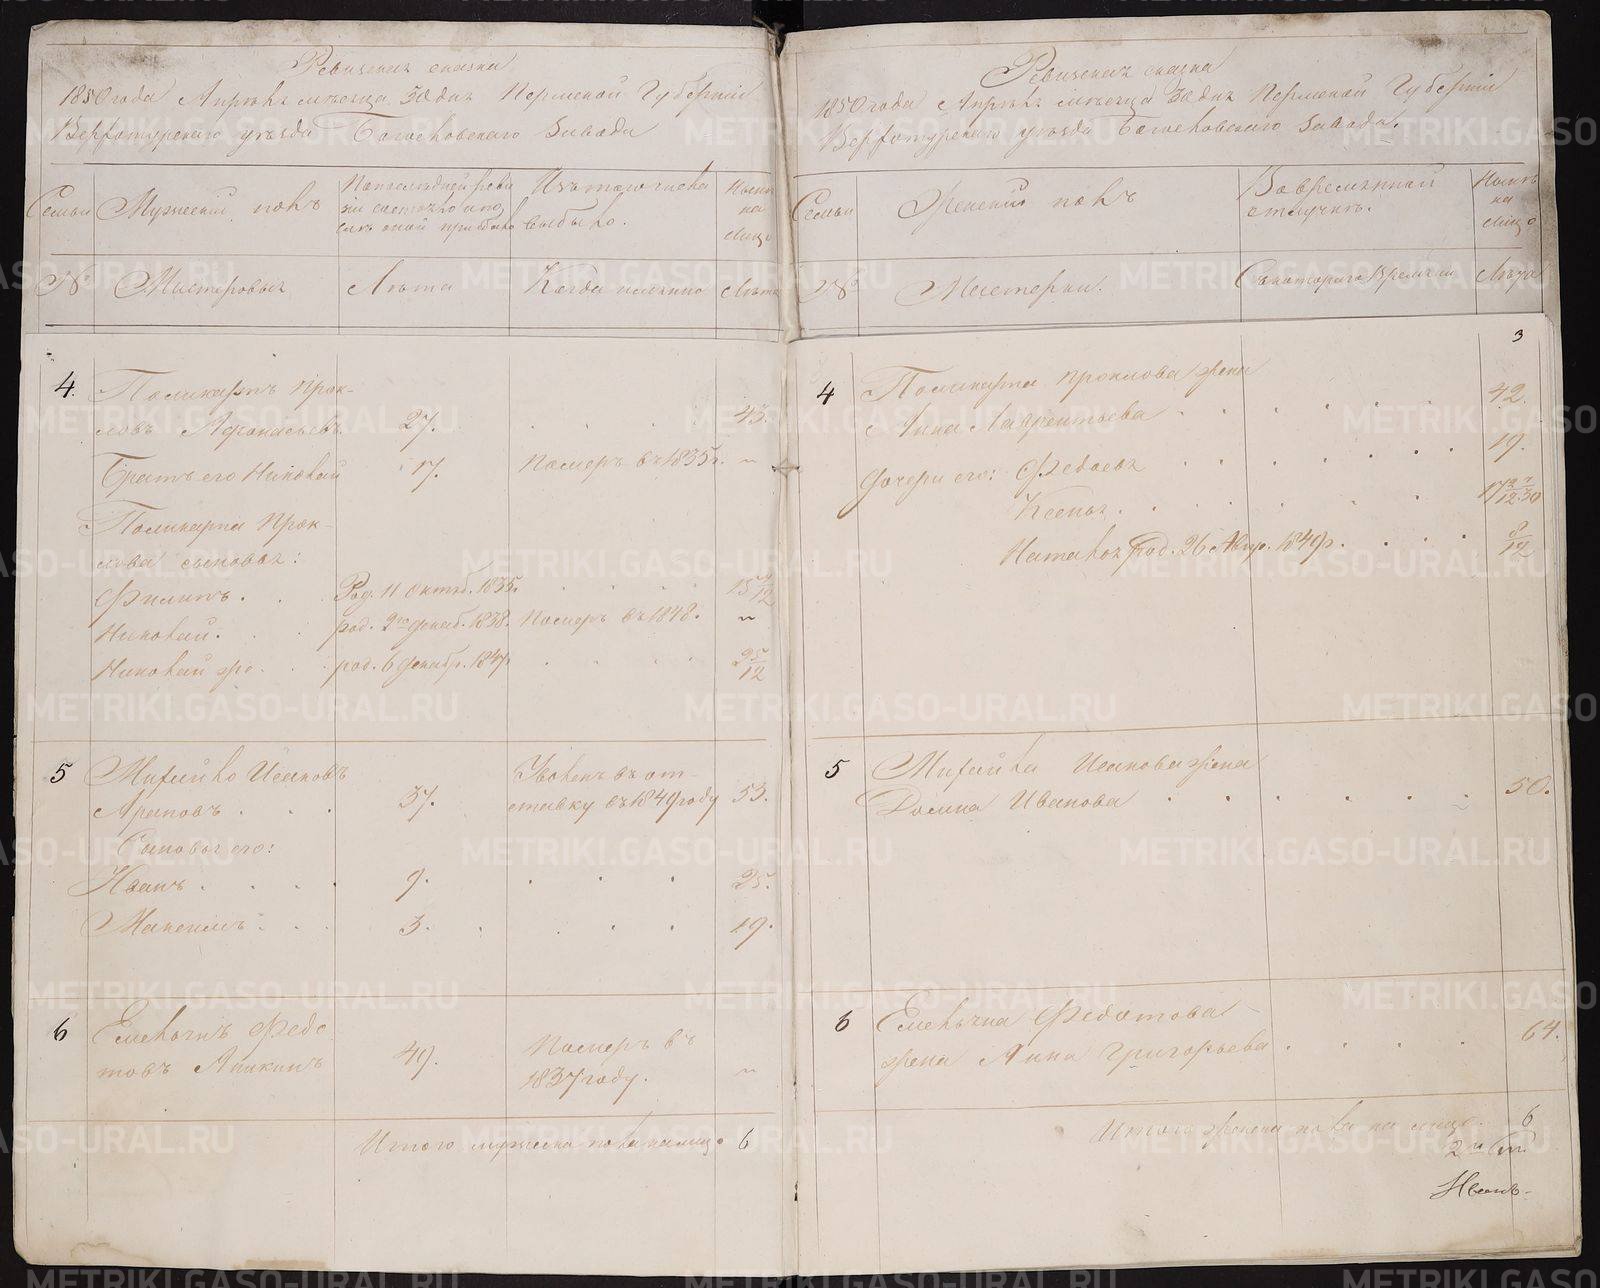 Ревизская сказка
1850 года Апреля месяца 30 дня Пермской Губернiи
Верхотурскаго уезда Богословскаго Завода
Семьи
Мужеский полъ
По последней реви
зiи состояло и по
сле оной прибыло
Изъ того числа
выбыло.
Ныне
на
лицо
№
Мастеровые
Лета
Когда именно
Лета
4.
Поликарпъ Прок-
ловъ Афонасьевъ.
27.
43.
Братъ его Николай
17.
Померъ въ 1835 г.
"
Поликарпа Прок-
лова сыновья:
Филипъ.
Род. 11 Октяб. 1835.
Николай.
род. 2го Декаб. 1838.
Померъ въ 1848.
"
Николай же.
род. 6 Декабр. 1847
2 5/12
5
Михайло Исаковъ
Араповъ
37.
Уволенъ въ от-
ставку въ 1849 году
53.
Сыновья его:
Иванъ
9.
25.
Максимъ
3.
19.
6
Емельянъ Федо
товъ Аникинъ
49.
Померъ въ
1837 году.
"
Итого мужеска пола на лицо
6
Ревизская сказка
1850 года Апреля месяца 30 дня Пермской Губернiи
Верхотурскаго уезда Богословскаго Завода.
Семьи
Женский полъ
Во временной
отлучке.
Ныне
на
лицо
№
Мастерки.
Съ котораго времени
Лета
3
4
Поликарпа Проклова жена
Анна Лаврентьева
42.
Дочери его: Федосья
19.
Ксенья
Наталья род. 26 Авгу. 1849 г.
8/12
5
Михайла Исакова жена
Домна Иванова
50.
6
Емельяна Федотова
жена Анна Григорьева
64.
Итого женска пола на лицо.
6
Иванъ
METRIKI.GASO-URAL.RU